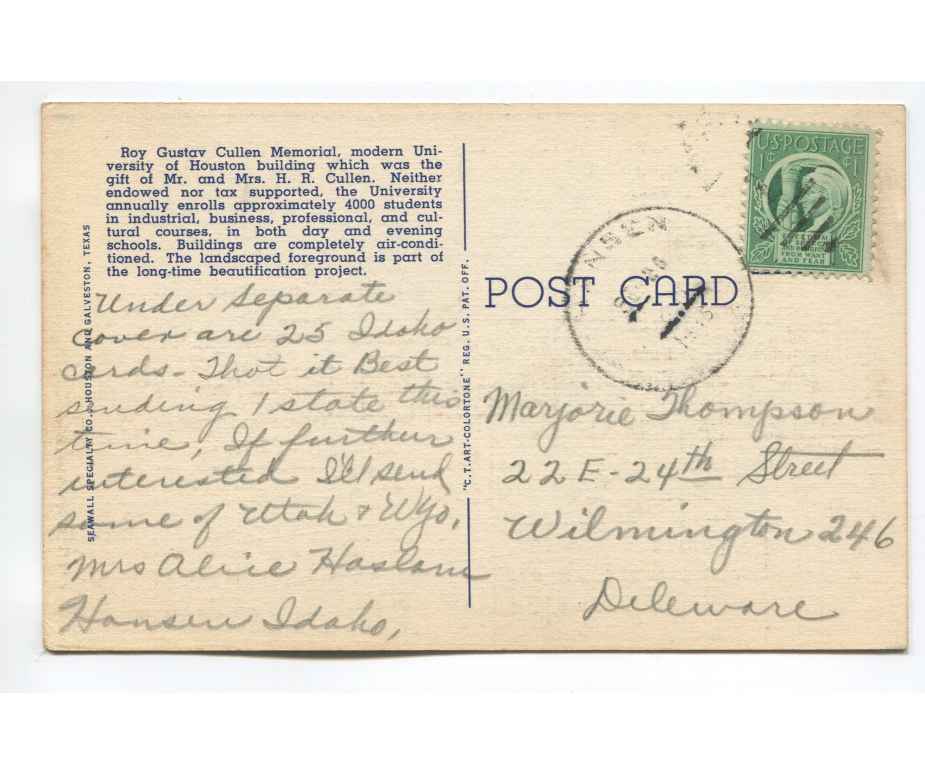 Roy Gustav Cullen Memorial, modern Uni-
versity of Houston building which was the
gift of Mr. and Mrs. H. R. Cullen. Neither
endowed nor tax supported, the University
annually enrolls approximately 4000 students
in industrial, business, professional, and cul-
tural courses, in both day and evening
schools. Buildings are completely air-condi-
tioned. The landscaped foreground is part of
the long-time beautification project.
SEAWALL SPECIALTY CO., HOUSTON AND GALVESTON, TEXAS
Under separate
cover are 25 Idaho
cards - Thot it Best
sending 1 state this
time, If further
interested I'll send
some of Utah & Wyo,
Mrs Alice Haslam
Hansen Idaho,
"C.T. ART-COLORTONE" REG. U.S. PAT. OFF.
POST CARD
U.S. POSTAGE
1¢ ¢1
FROM WANT
AND FEAR
Marjorie Thompson
22 E - 24th Street
Wilmington 246
Deleware